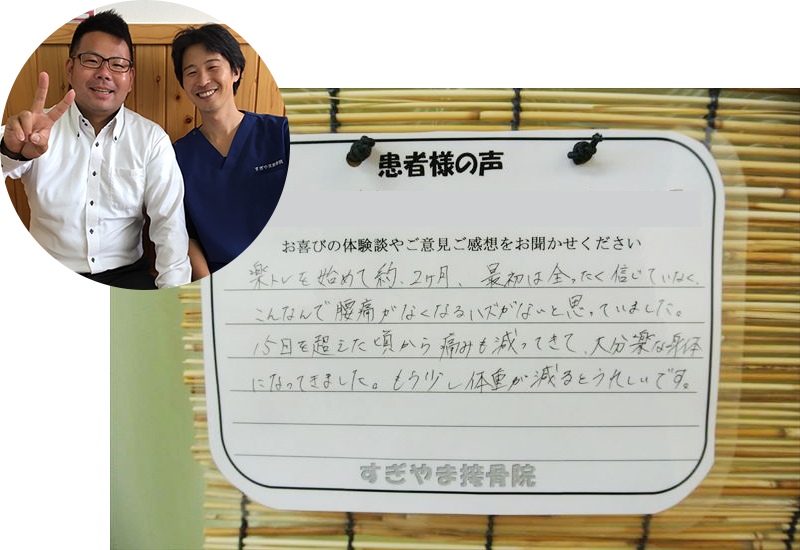 すぎやま接骨院
患者様の声
お喜びの体験談やご意見ご感想をお聞かせください
楽トレを始めて約、2ヶ月、最初は全ったく信じていなく、
こんなんで腰痛がなくなるハズがないと思っていました。
15回を超えた頃から痛みも減ってきて、大分楽な身体
になってきました。もう少し体重が減るとうれしいです。
すぎやま接骨院